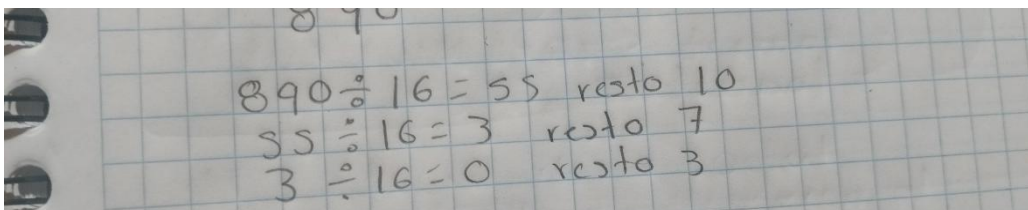 890
890 ÷ 16 = 55 resto 10
55 ÷ 16 = 3 resto 7
3 ÷ 16 = 0 resto 3